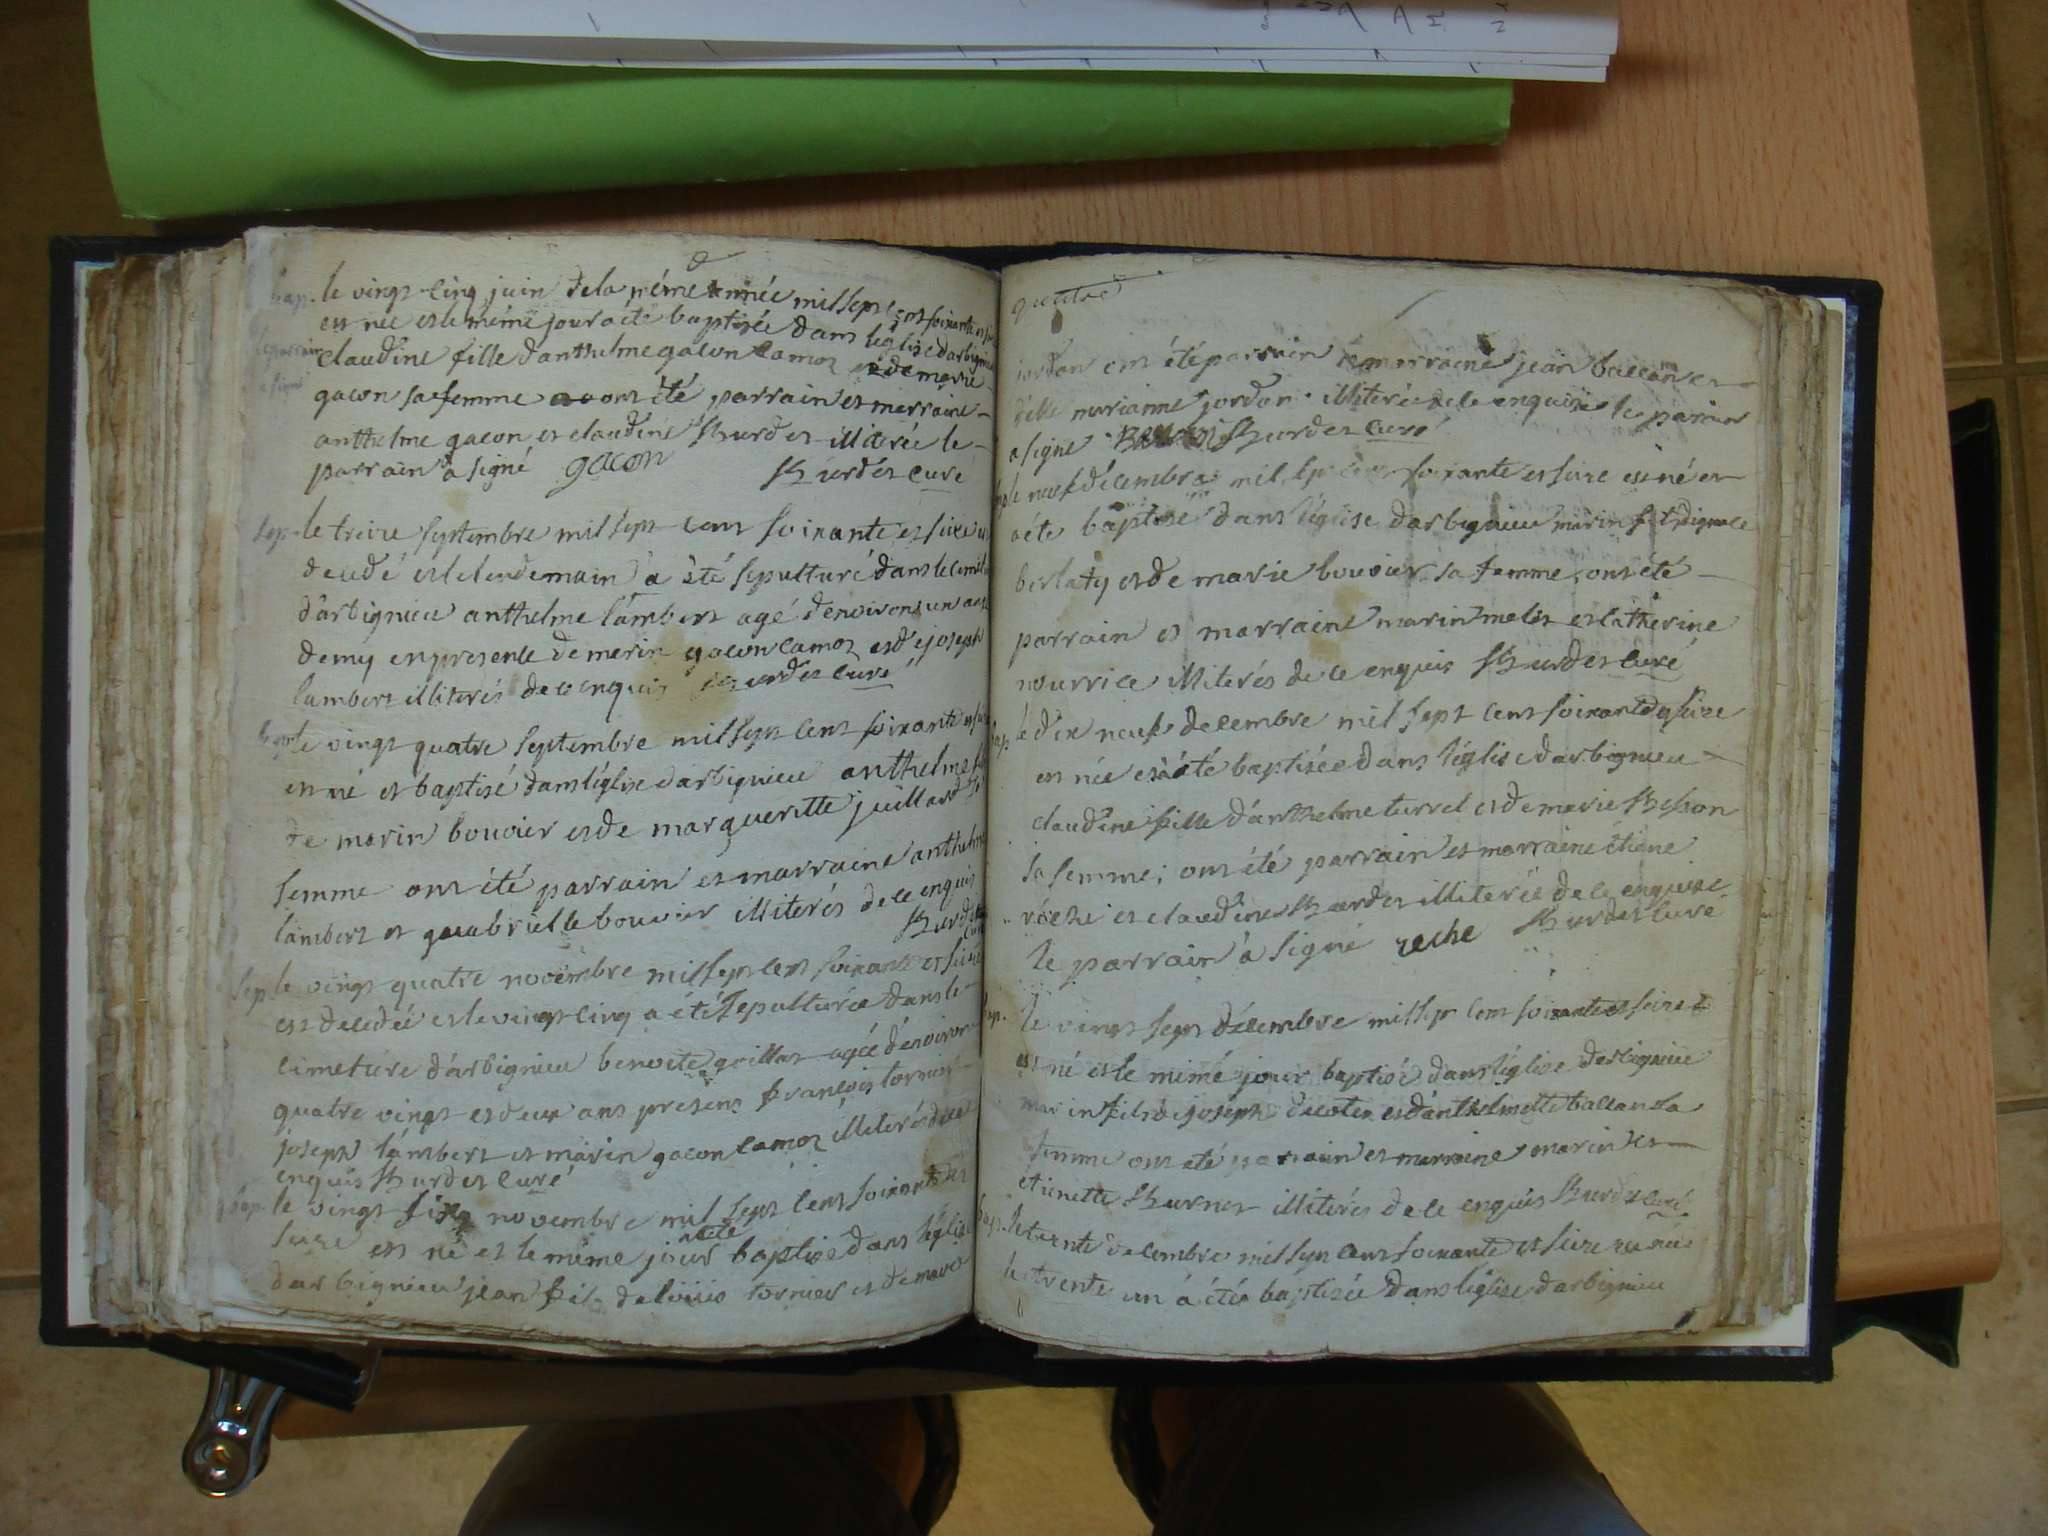 bap. le vingt-cinq juin de la même année mil sept cent soixante et
est née et le même jour a été baptisée dans l'église d'arbignieu
claudine fille d'anthelme gacon camoz et de marie
gacon sa femme ont été parrain et marraine
anthelme gacon et claudine Burdet illiterée le
parrain a signé gacon Burdet curé
sep. le treize septembre mil sept cent soixante et seize est
decedé et le lendemain a été sepulturé dans le
d'arbignieu anthelme lambert agé d'environ un an
demy en presence de merin gacon camoz et de joseph
lambert illiterés de ce enquis Burdet curé
bap. le vingt quatre septembre mil sept cent soixante et
est né et baptisé dans l'église d'arbignieu anthelme
de marin bouvier et de margueritte juillard
femme ont été parrain et marraine anthelme
lambert et gaubrielle bouvier illiterés de ce enquis
Burdet
curé
sep. le vingt quatre novembre mil sept cent soixante et seize
est decedée et le vingt-cinq a été sepulturée dans le
cimetiere d'arbignieu benoite grillat agée d'environ
quatre vingt et deux ans presens françois tornier
joseph lambert et marin gacon camoz illiterés de ce
enquis Burdet curé
bap. le vingt novembre mil sept cent soixante et
seize est né et le même jour a été baptisé dans l'église
d'arbignieu jean fils de louis tornier et de marie
quatre
jordan ont été parrain et marraine jean balcon et
delle marianne jordan illiterée de ce enquise le parain
a signé Burdet curé
bap. le neuf décembre mil sept cent soixante et seize est né et
a été baptisé dans l'église d'arbignieu marin
berlaty et de marie bouvier sa femme ont été
parrain et marraine marin melet et catherine
nourrice illiterés de ce enquis Burdet curé
bap. le dix neuf decembre mil sept cent soixante et seize
est née et a été baptisée dans l'église d'arbignieu
claudine fille d'anthelme turrel et de marie Besson
sa femme; ont été parrain et marraine étiene
réche et claudine Burdet illiterée de ce enquise
le parrain a signé reche Burdet curé
bap. le vingt sept décembre mil sept cent soixante et seize
est né et le même jour baptisé dans l'église d'arbignieu
marin fils de joseph et d'anthelmette balcan sa
femme ont été parrain et marraine marin et
etienette Burnet illiterés de ce enquis Burdet curé
bap. le trente decembre mil sept cent soixante et seize est né
le trente un a été baptisée dans l'église d'arbignieu